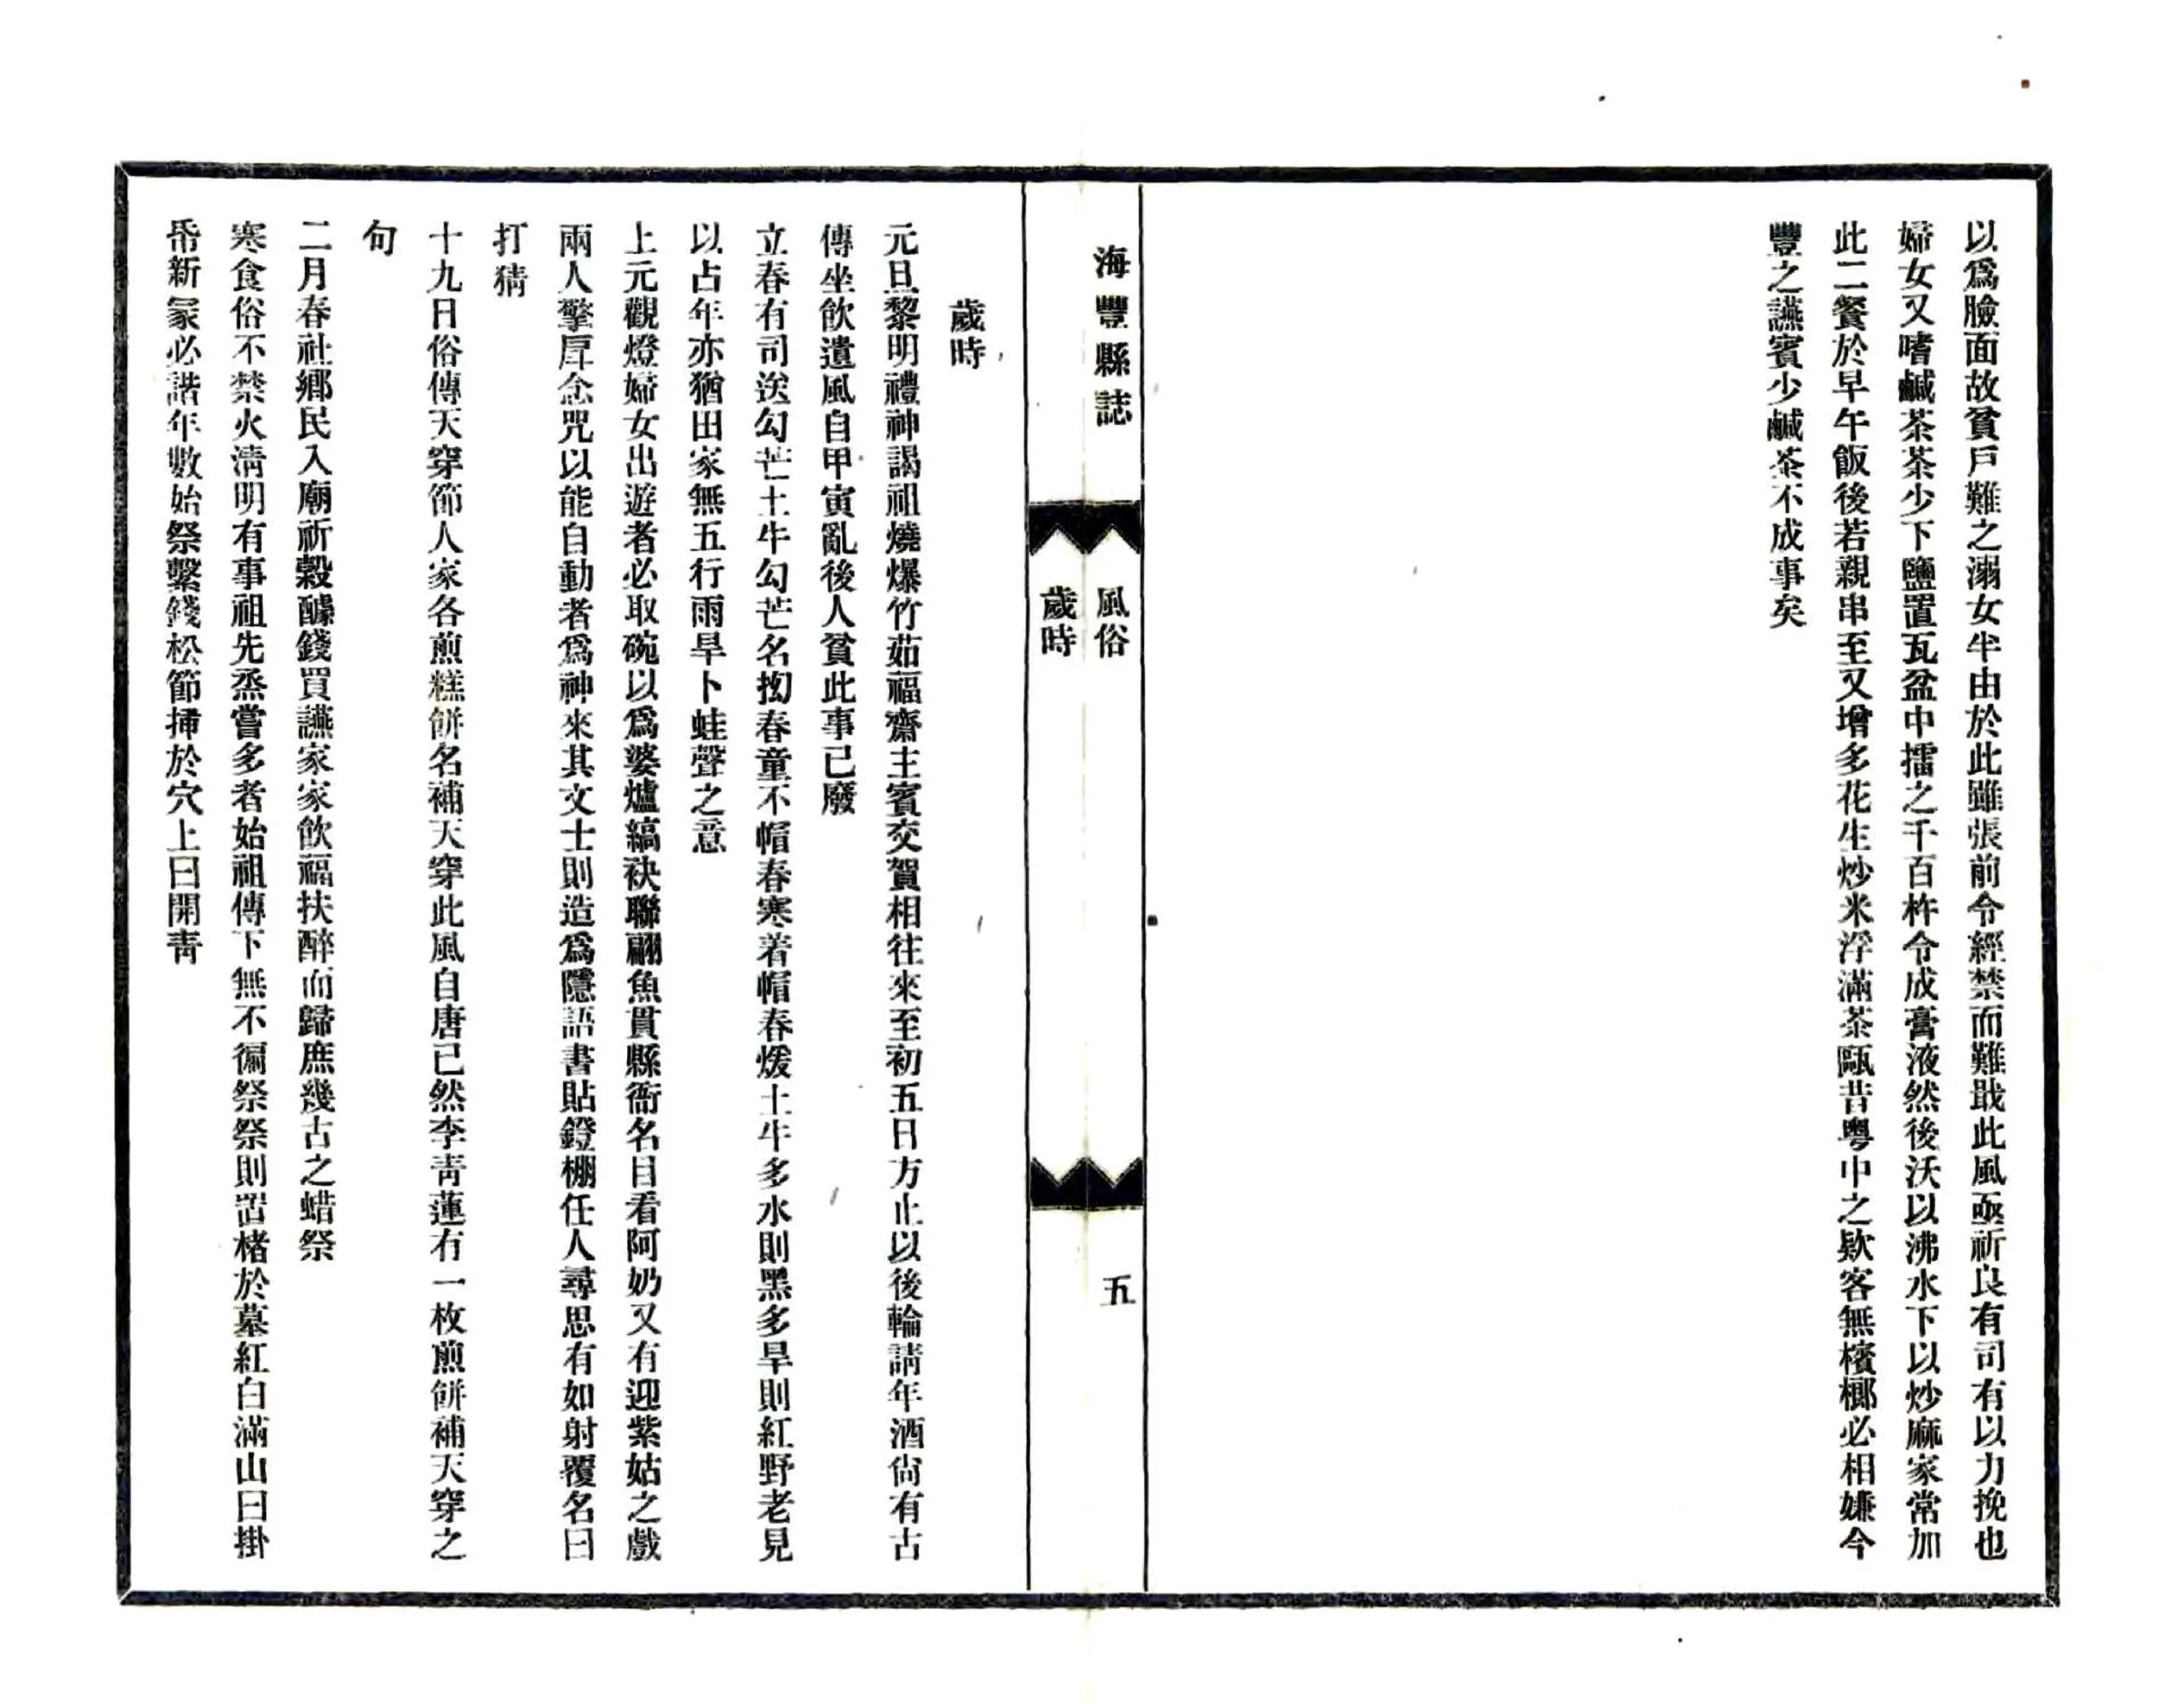 以爲臉面故貧戶難之溺女半由於此雖張前令經禁而難戢此風亟祈良有司有以力挽也
婦女又嗜鹹茶茶少下鹽置瓦盆中擂之千百杵令成膏液然後沃以沸水下以炒麻家常加
此二餐於早午飯後若親串至又增多花生炒米浮滿茶甌昔粵中之欵客無檳榔必相嫌今
豐之讌賓少鹹茶不成事矣
海豐縣誌
風俗
歲時
五
歲時
元旦黎明禮神謁祖燒爆竹茹福齋主賓交賀相往來至初五日方止以後輪請年酒尙有古
傳坐飲遺風自甲寅亂後人貧此事已廢
立春有司送勾芒土牛勾芒名拗春童不帽春寒着帽春煖土牛多水則黑多旱則紅野老見
以占年亦猶田家無五行雨旱卜蛙聲之意
上元觀燈婦女出遊者必取碗以爲婆爐縞袂聯翩魚貫縣衙名目看阿奶又有迎紫姑之戲
兩人擎 念咒以能自動者爲神來其文士則造爲隱語書貼鐙棚任人尋思有如射覆名曰
打猜
十九日俗傳天穿節人家各煎糕餅名補天穿此風自唐已然李靑蓮有一枚煎餅補天穿之
句
二月春社鄕民入廟祈穀醵錢買讌家家飲福扶醉而歸庶幾古之蜡祭
寒食俗不禁火淸明有事祖先烝嘗多者始祖傳下無不徧祭祭則 楮於墓紅白滿山曰掛
帋新冡必諧年數始祭繫錢松節掃於穴上曰開靑